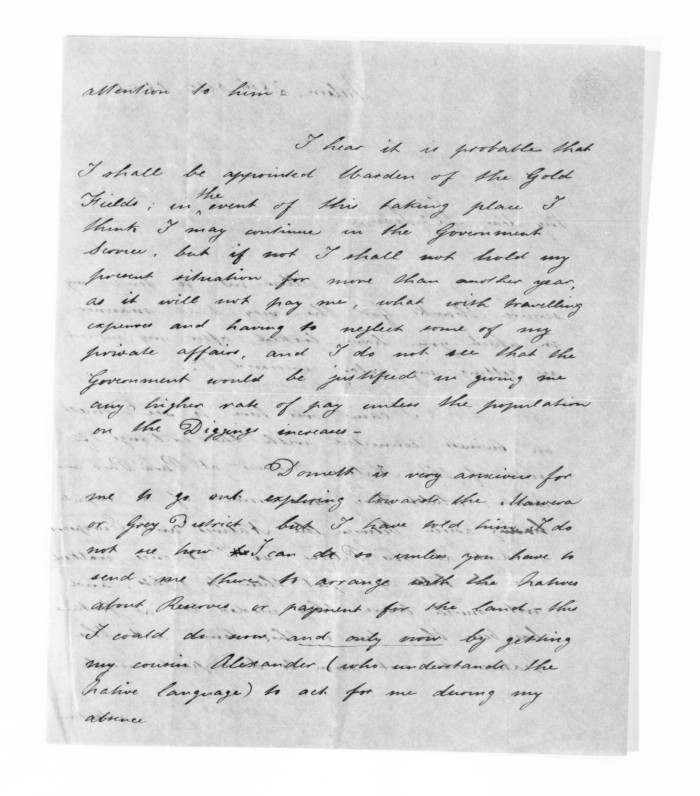 attention to him
I hear it is probable that
I shall be appointed Warden of the Gold
Fields; in the event of this taking place I
think I may continue in the Government
Service, but if not I shall not hold my
present situation for more than another year,
as it will not pay me, what with travelling
expences and having to neglect some of my
private affairs, and I do not see that the
Government would be justified in giving me
any higher rate of pay unless the population
on the Diggings increases -
Domett is very anxious for
me to go out exploring towards the Mawera
or Grey District, but I have told him I do
not see how I can do so unless you have to
send me there to arrange with the Natives
about Reserves, or payment for the land - this
I could do now, and only now by getting
my cousin Alexander (who understands the
Native language) to act for me during my
absence